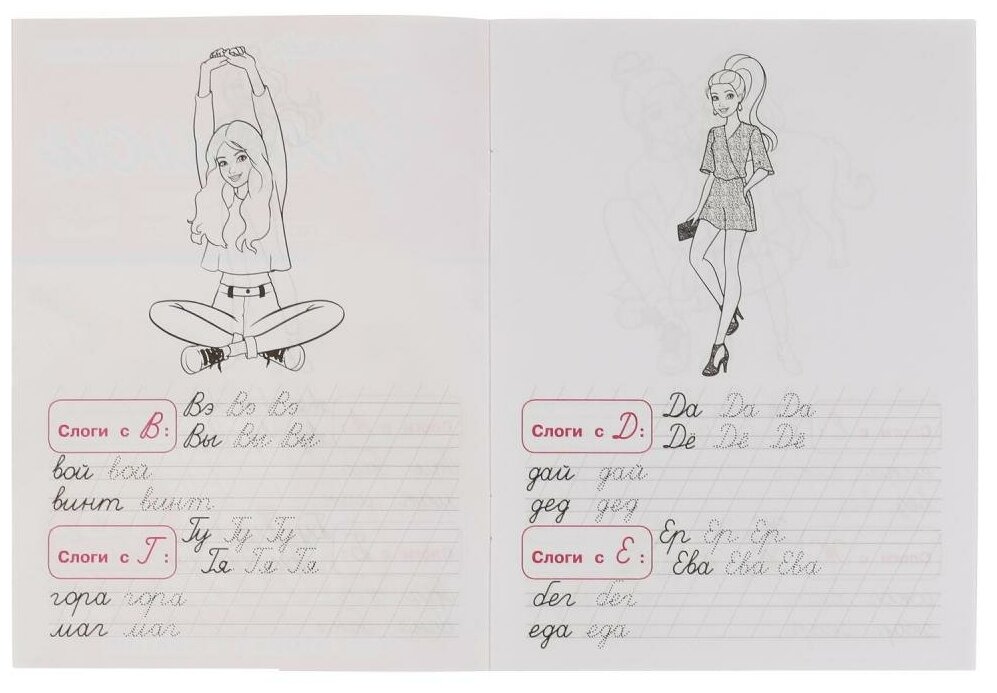 Вэ Вэ Вэ
Слоги с В:
Вы Вы Вы
вой вой
винт винт
Гу Гу Гу
Слоги с Г:
Гя Гя Гя
гора гора
маг маг
Да Да Да
Слоги с Д:
Дё Дё Дё
дай дай
дед дед
Ер Ер Ер
Слоги с Е:
Ева Ева Ева
бег бег
еда еда